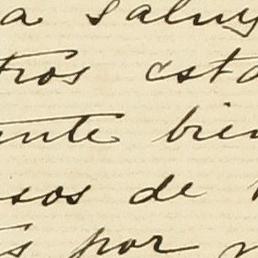 a saluy
tros esta
ente bien
sos de
s por